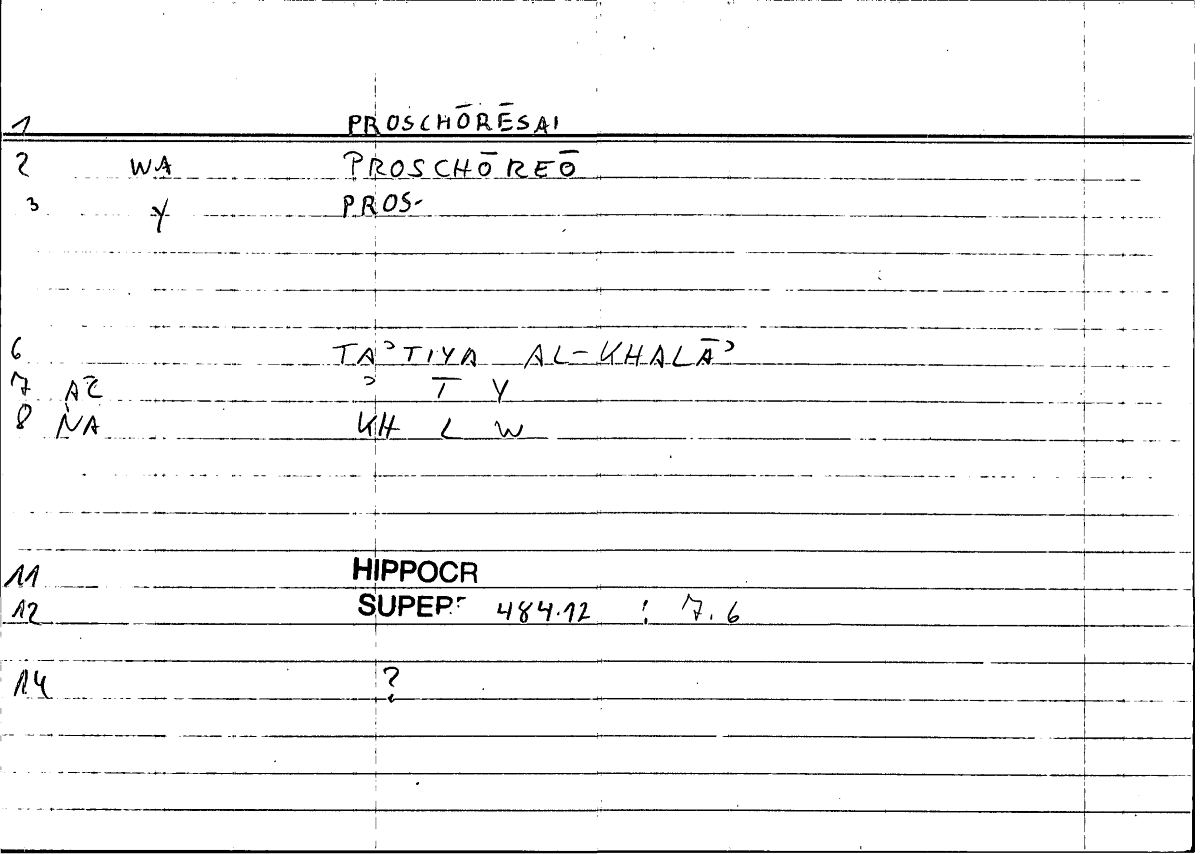 1 PROSCHŌRĒSAI
2 WA PROSCHŌREŌ
3 Y PROS-
6 TAʾTIYA AL-KHALĀʾ
7 ʾ T Y
8 NA KH L W
11 HIPPOCR
12 SUPERF 484.12 : 7.6
14 ?